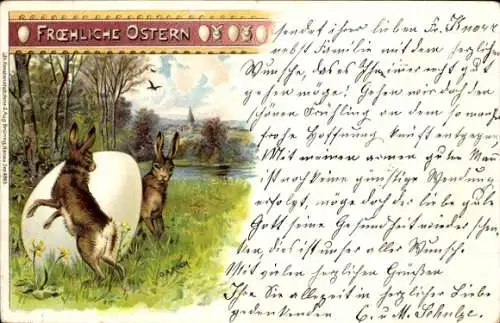 FRŒHLICHE OSTERN
sendet ihrer lieben Fr. Knorr
nebst Familie mit dem herzlichen
Wunsche, das es Ihnen immer recht gut
gehen möge! Gehen wir doch den
schönen Frühling an dem so manche
frohe Hoffnung keimt entgegen,
Mit meinem armen guten Mann
ist noch keine günstige Wendung
erfolgt, möge doch der liebe gute
Gott seine Gesundheit wieder schen-
ken, dies ist unser aller Wunsche
Mit vielen herzlichen Grüssen
Ihre Sie allezeit in herzlicher Liebe
gedenkenden E. u M. Schulze.